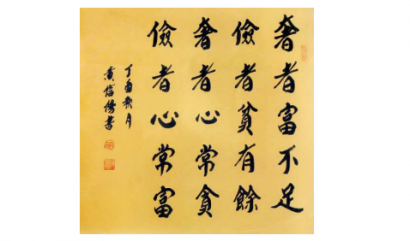 奢者富不足
儉者貧有餘
奢者心常貪
儉者心常富
丁酉秋月
書